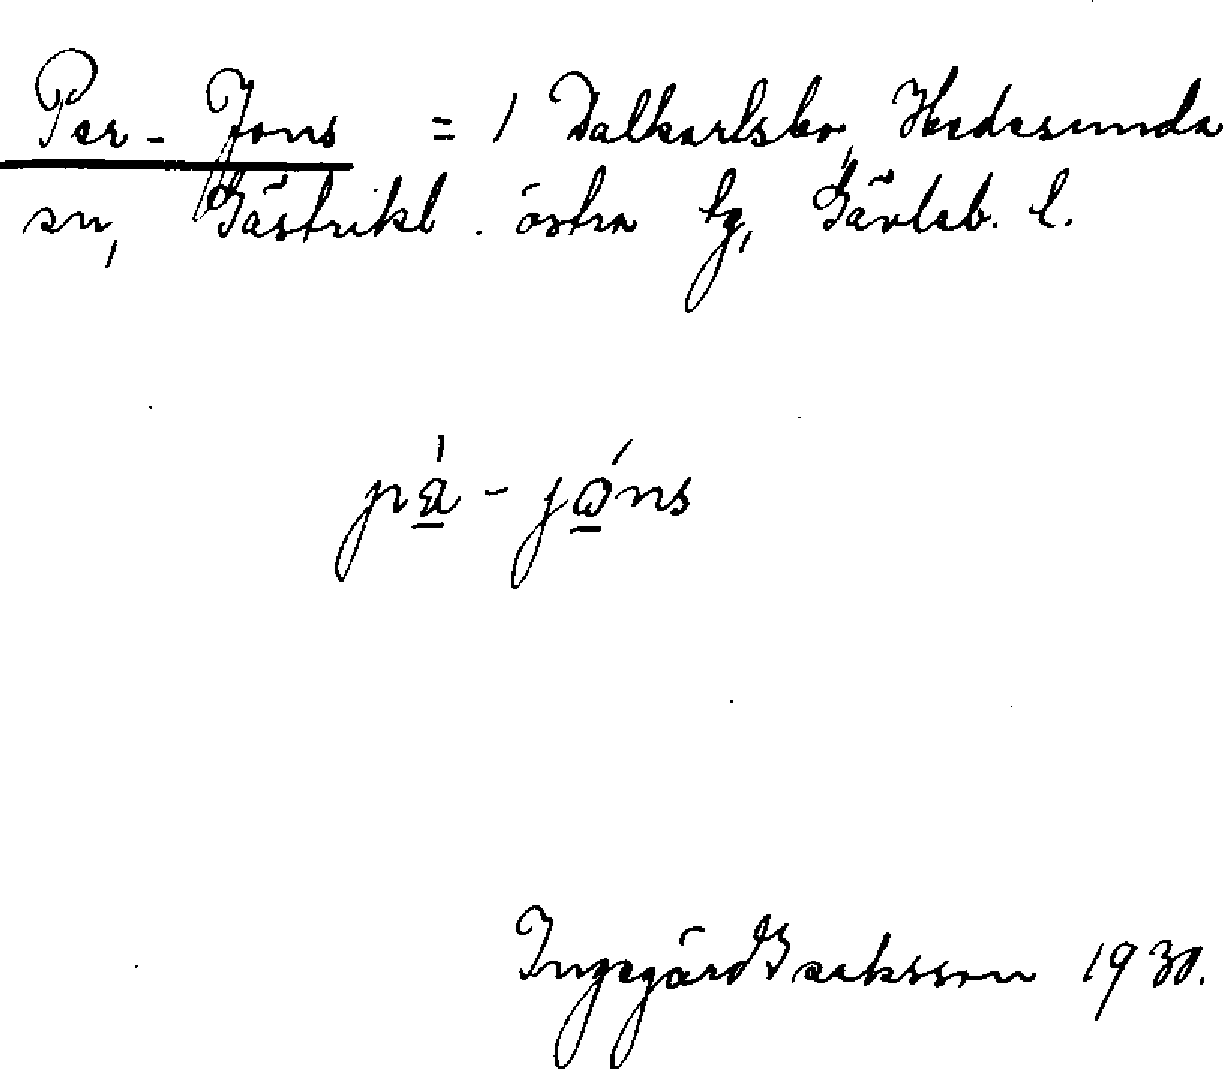 Per-Jons = 1 Dalkarlsbo, Hedesunda
sn, Gästrikl. östra tg, Gävleb. l.
pä́-jώns
Ingegärd Isaksson 1930.